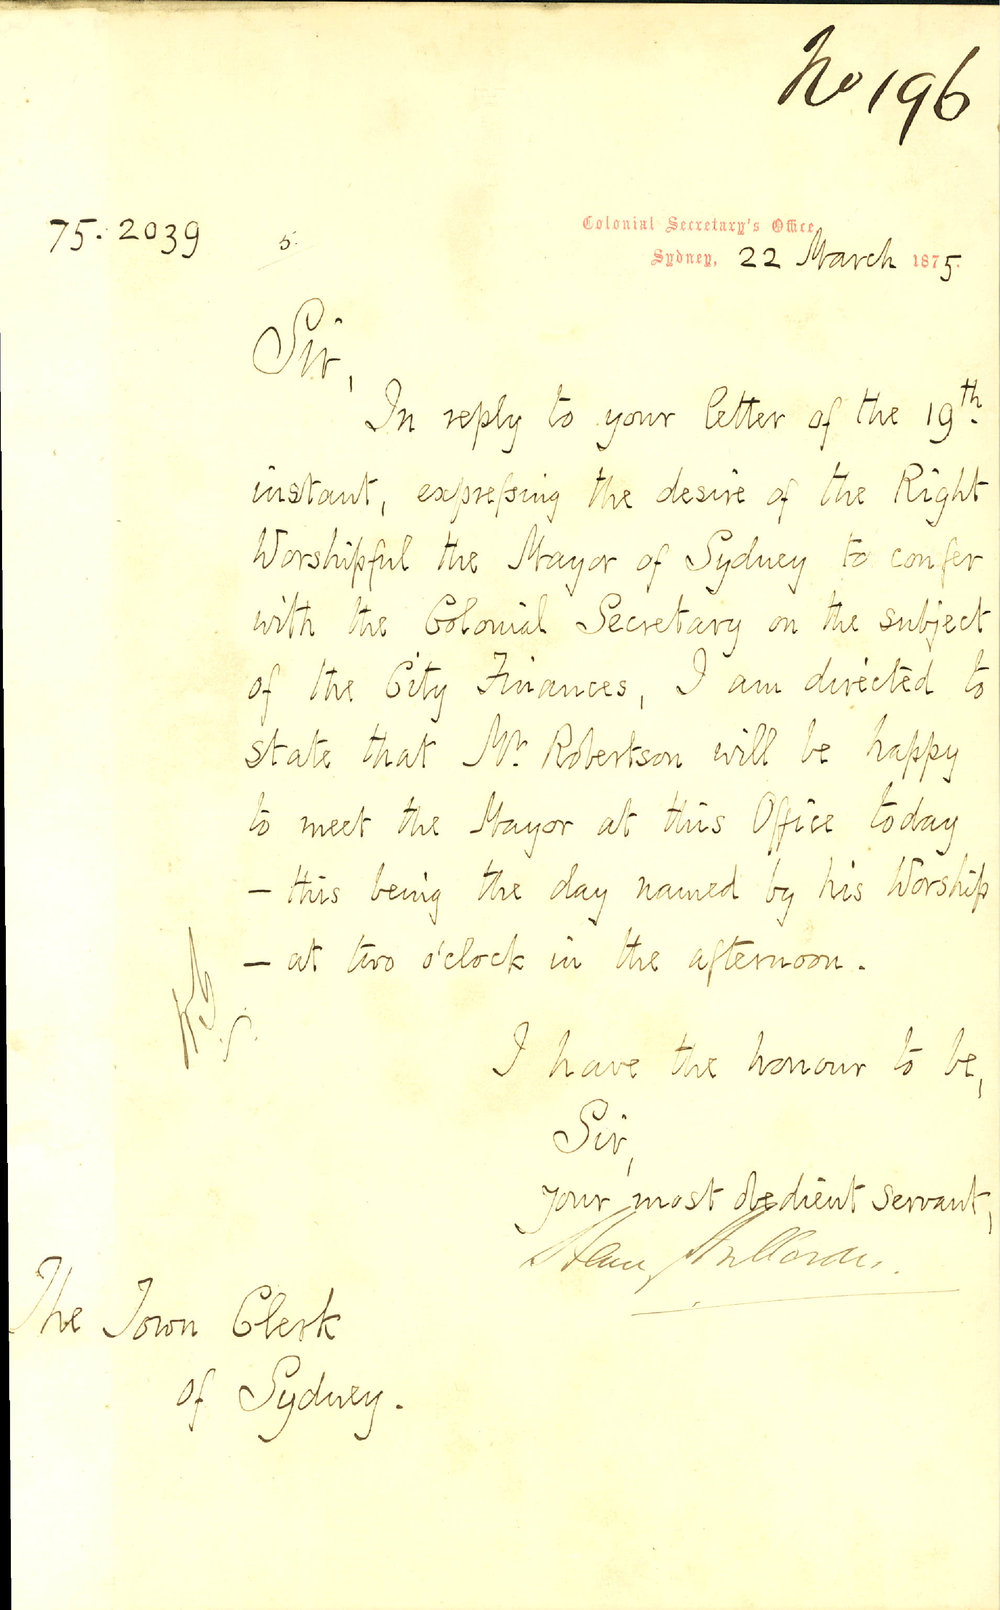 No 196
75. 2039
5.
Colonial Secretary's Office,
Sydney, 22 March 1875.
Sir,
In reply to your letter of the 19th.
instant, expressing the desire of the Right
Worshipful the Mayor of Sydney to confer
with the Colonial Secretary on the subject
of the City Finances, I am directed to
state that Mr. Robertson will be happy
to meet the Mayor at this Office today
– this being the day named by his Worship
– at two o'clock in the afternoon.
I have the honour to be,
Sir,
your most obedient servant,
The Town Clerk
of Sydney.